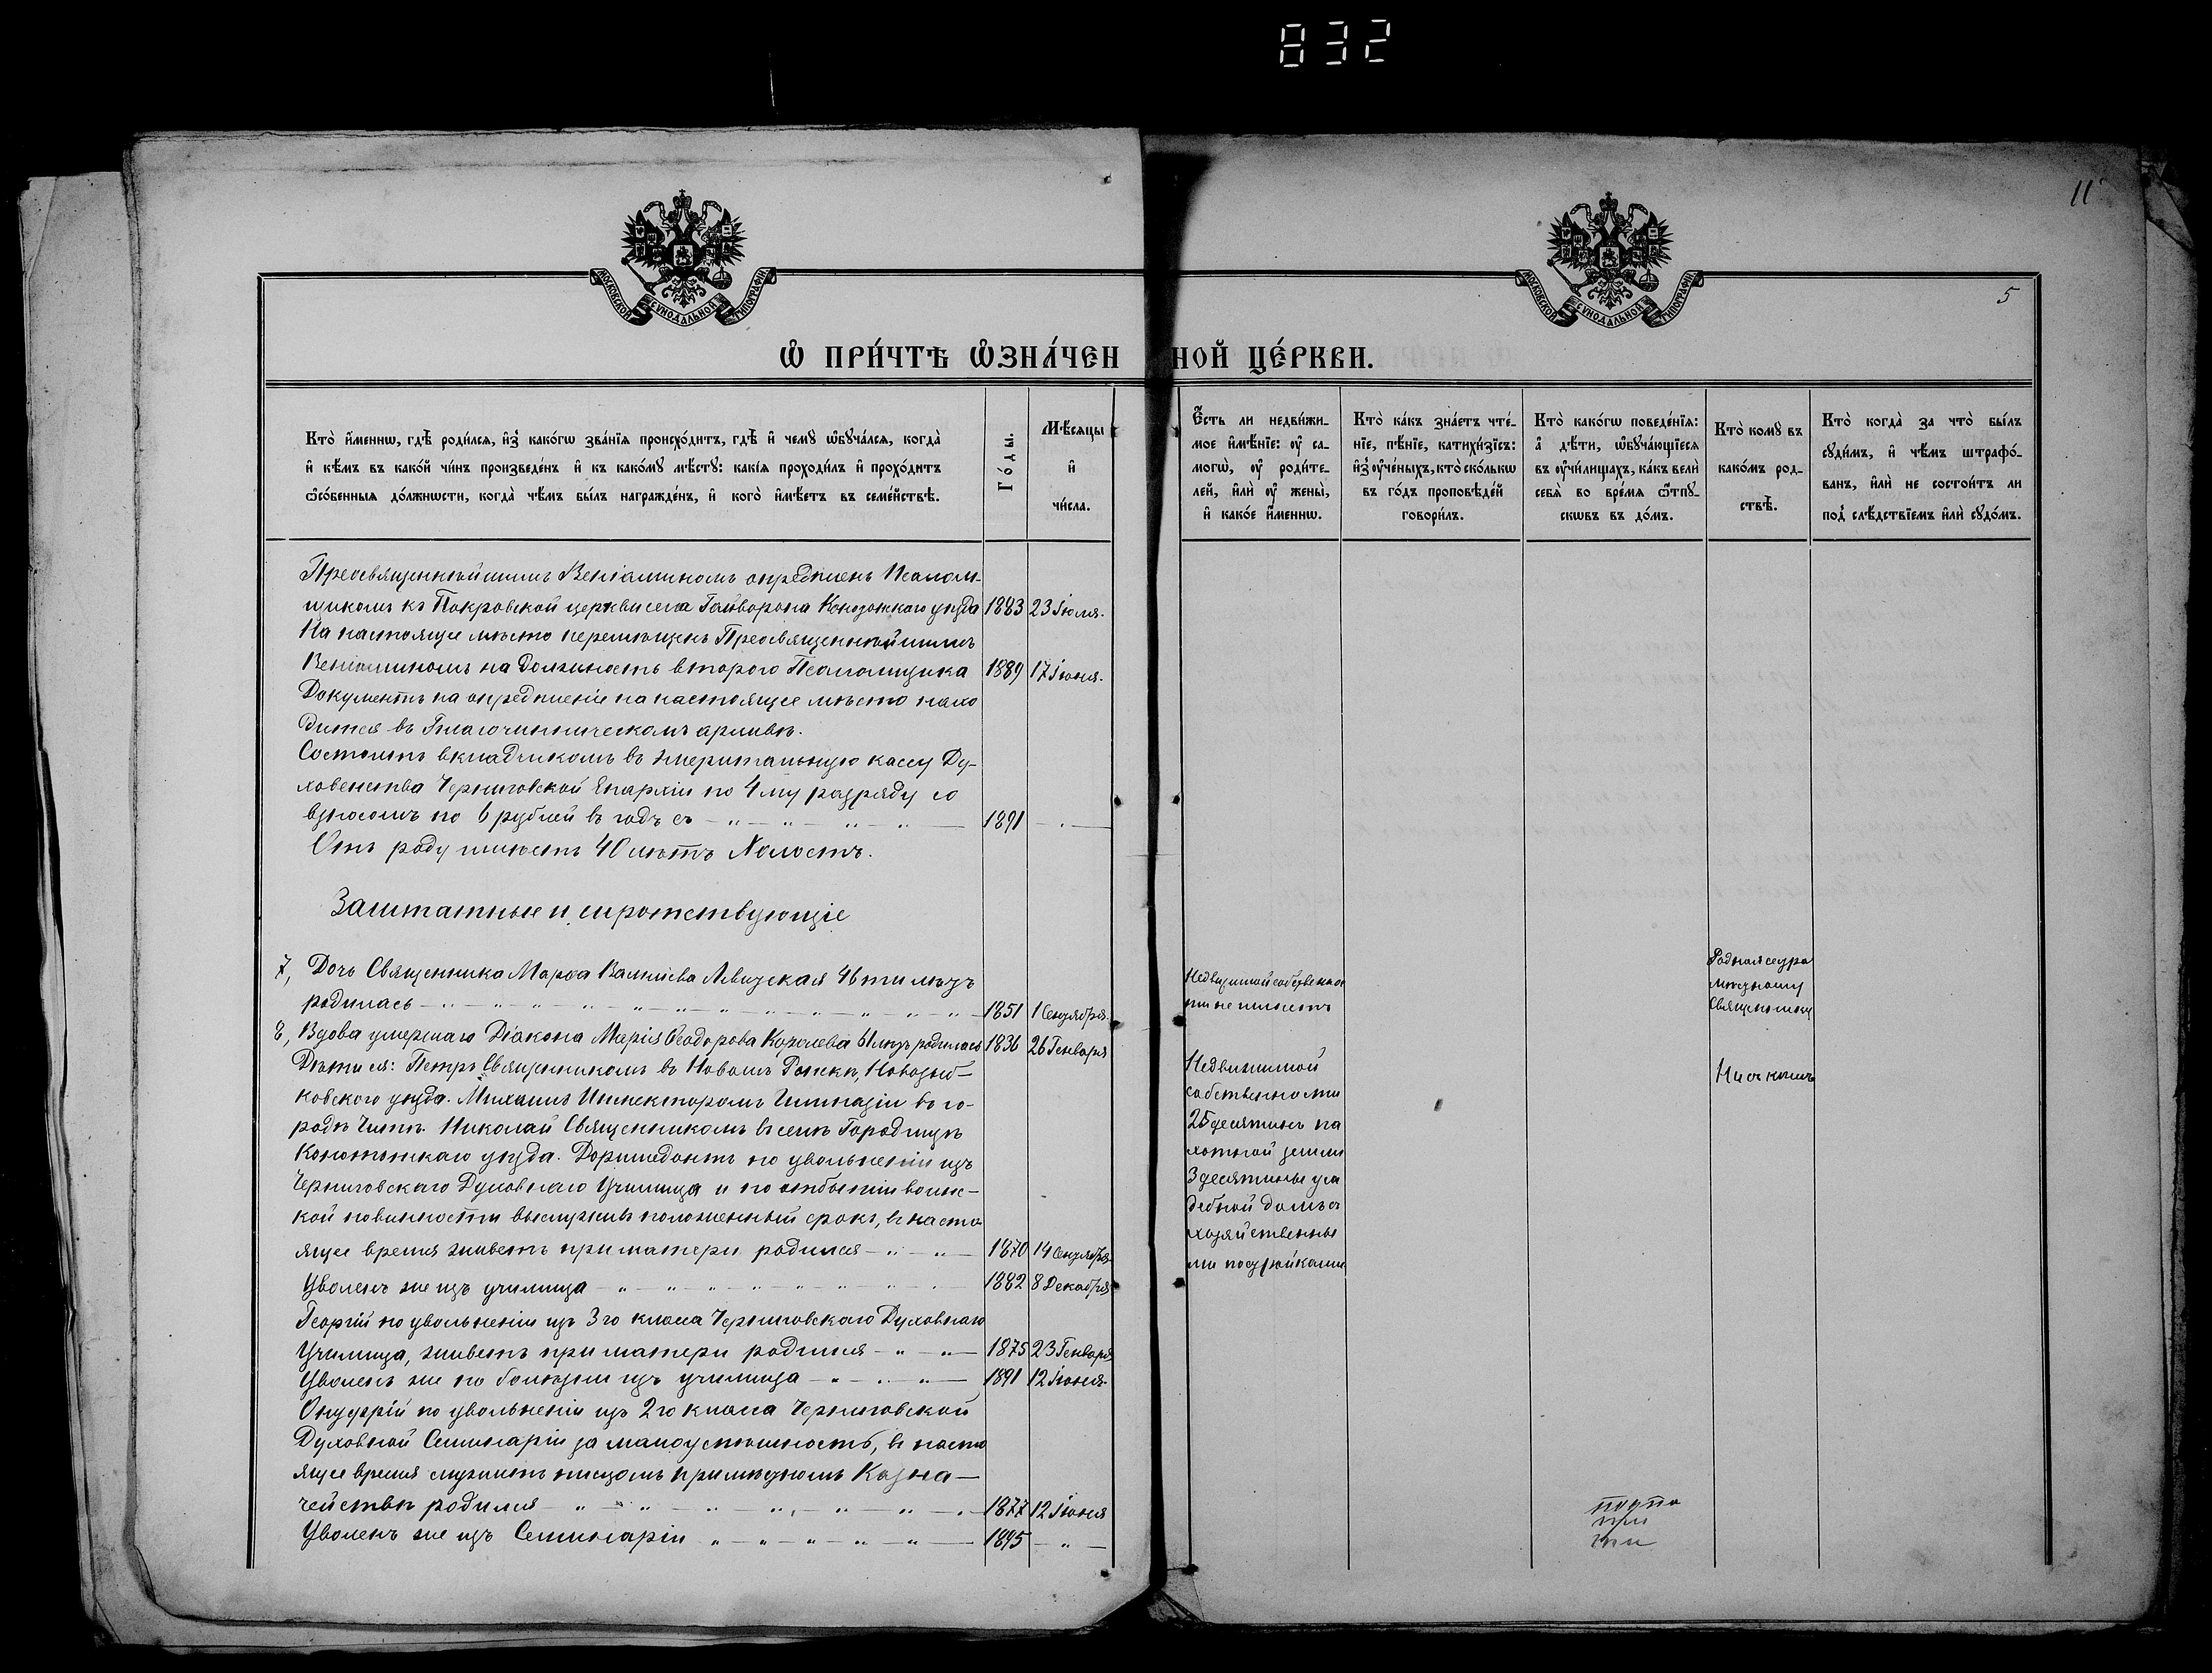 832
11
5
МОСКОВСКОЙ СѴНОДАЛЬНОЙ ТИПОГРАФІИ
МОСКОВСКОЙ СѴНОДАЛЬНОЙ ТИПОГРАФІИ
Ѡ ПРИ́ЧТѢ Ѡ҆ЗНА́ЧЕННОЙ ЦЕ́РКВИ.
Кто̀ и҆́меннѡ, гдѣ̀ роди́лсѧ, и҆з̾ како́гѡ зва́нїѧ происхо́дитъ, гдѣ̀ и҆ чемꙋ̀ ѡ҆бꙋча́лсѧ, когда̀
и҆ кѣ́мъ въ како́й чи́нъ произведе́нъ и҆ къ како́мꙋ мѣ́стꙋ: какі́ѧ проходи́лъ и҆ прохо́дитъ
ѻ҆со́бенныѧ до́лжнѡсти, когда̀ чѣ́мъ бы́лъ награжде́нъ, и҆ кого̀ и҆мѣ́етъ въ семе́йствѣ.
Го́ды.
Мѣ́сѧцы
и҆
чи́сла.
Е҆́сть ли недви́жи-
мое и҆мѣ́нїе: ᲂу҆ са-
могѡ̀, ᲂу҆ роди́те-
лей, и҆лѝ ᲂу҆ жены̀,
и҆ како́е и҆́меннѡ.
Кто̀ ка́къ зна́етъ чте́-
нїе, пѣ́нїе, катихи́зїсъ:
и҆з̾ ᲂу҆че́ныхъ, кто ско́лькѡ
въ го́дъ проповѣ́дей
говори́лъ.
Кто̀ како́гѡ поведе́нїѧ:
а҆ дѣ́ти, ѡ҆бꙋча́ющїесѧ
въ ᲂу҆чи́лищахъ, ка́къ велѝ
себѧ̀ во вре́мѧ ѿпꙋ-
скѡвъ въ до́мъ.
Кто̀ комꙋ̀ въ
како́мъ род-
ствѣ̀.
Кто̀ когда̀ за что̀ бы́лъ
сꙋди́мъ, и҆ чѣ́мъ штрафо́-
ванъ, и҆лѝ не состои́тъ ли
под̾ слѣ́дствїемъ и҆лѝ сꙋдо́мъ.
Преосвященнѣйшимъ Веніаминомъ опредѣленъ Псалом-
щикомъ къ Покровской церкви села Гайворона Конотопскаго уѣзда 1883 23 Іюля.
На настоящее мѣсто перемѣщенъ Преосвященнѣйшимъ
Веніаминомъ на должность второго Псаломщика 1889 17 Іюня.
Документъ на опредѣленіе на настоящее мѣсто нахо
дится въ Благочинническомъ архивѣ.
Состоитъ вкладчикомъ въ эмеритальную кассу Ду-
ховенства Черниговской Епархіи по 4му разряду со
взносомъ по 6 рублей въ годъ съ — 1891 —
Отъ роду имѣетъ 40 лѣтъ Холостъ.
Заштатные и сиротствующіе
7, Дочь Священника Марѳа Васильева Левицкая 46ти лѣтъ
родилась — 1851 1 Сентября.
Недвижимой собственнос
ти не имѣетъ
Родная сестра
мѣстному
Священнику
8, Вдова умершаго Діакона Марія Ѳеодорова Королева 61 лѣтъ родилась 1836 26 Генваря
Дѣти ея: Петръ Священникомъ въ Новомъ Ропскѣ, Новозыб-
ковского уѣзда. Михаилъ Инспекторомъ Гимназіи въ го-
родѣ Читѣ. Николай Священникомъ въ селѣ Городищѣ
Конотопскаго уѣзда. Доримедонтъ по увольненіи изъ
Черниговскаго Духовнаго Училища и по отбытіи воинс-
кой повинности выслуживъ положенный срокъ, въ насто
ящее время живетъ при матери родился — 1870 14 Сентября.
Уволенъ же изъ училища — 1882 8 Декабря
Георгій по увольненіи изъ 3го класса Черниговскаго Духовнаго
Училища, живетъ при матери родился — 1875 23 Генваря
Уволенъ же по болѣзни изъ училища — 1891 12 Іюня.
Онуфрій по увольненіи изъ 2го класса Черниговской
Духовной Семинаріи за малоуспѣшность, въ насто
ящее время служитъ писцомъ при мѣстномъ Казна—
чействѣ родился — 1877 12 Іюня
Уволенъ же изъ Семинаріи — 1895 —
Недвижимой
собственности
25 десятинъ па
хотной земли
3 десятины уса
дебной домъ съ
хозяйственны
ми постройками
Ни съ кѣмъ